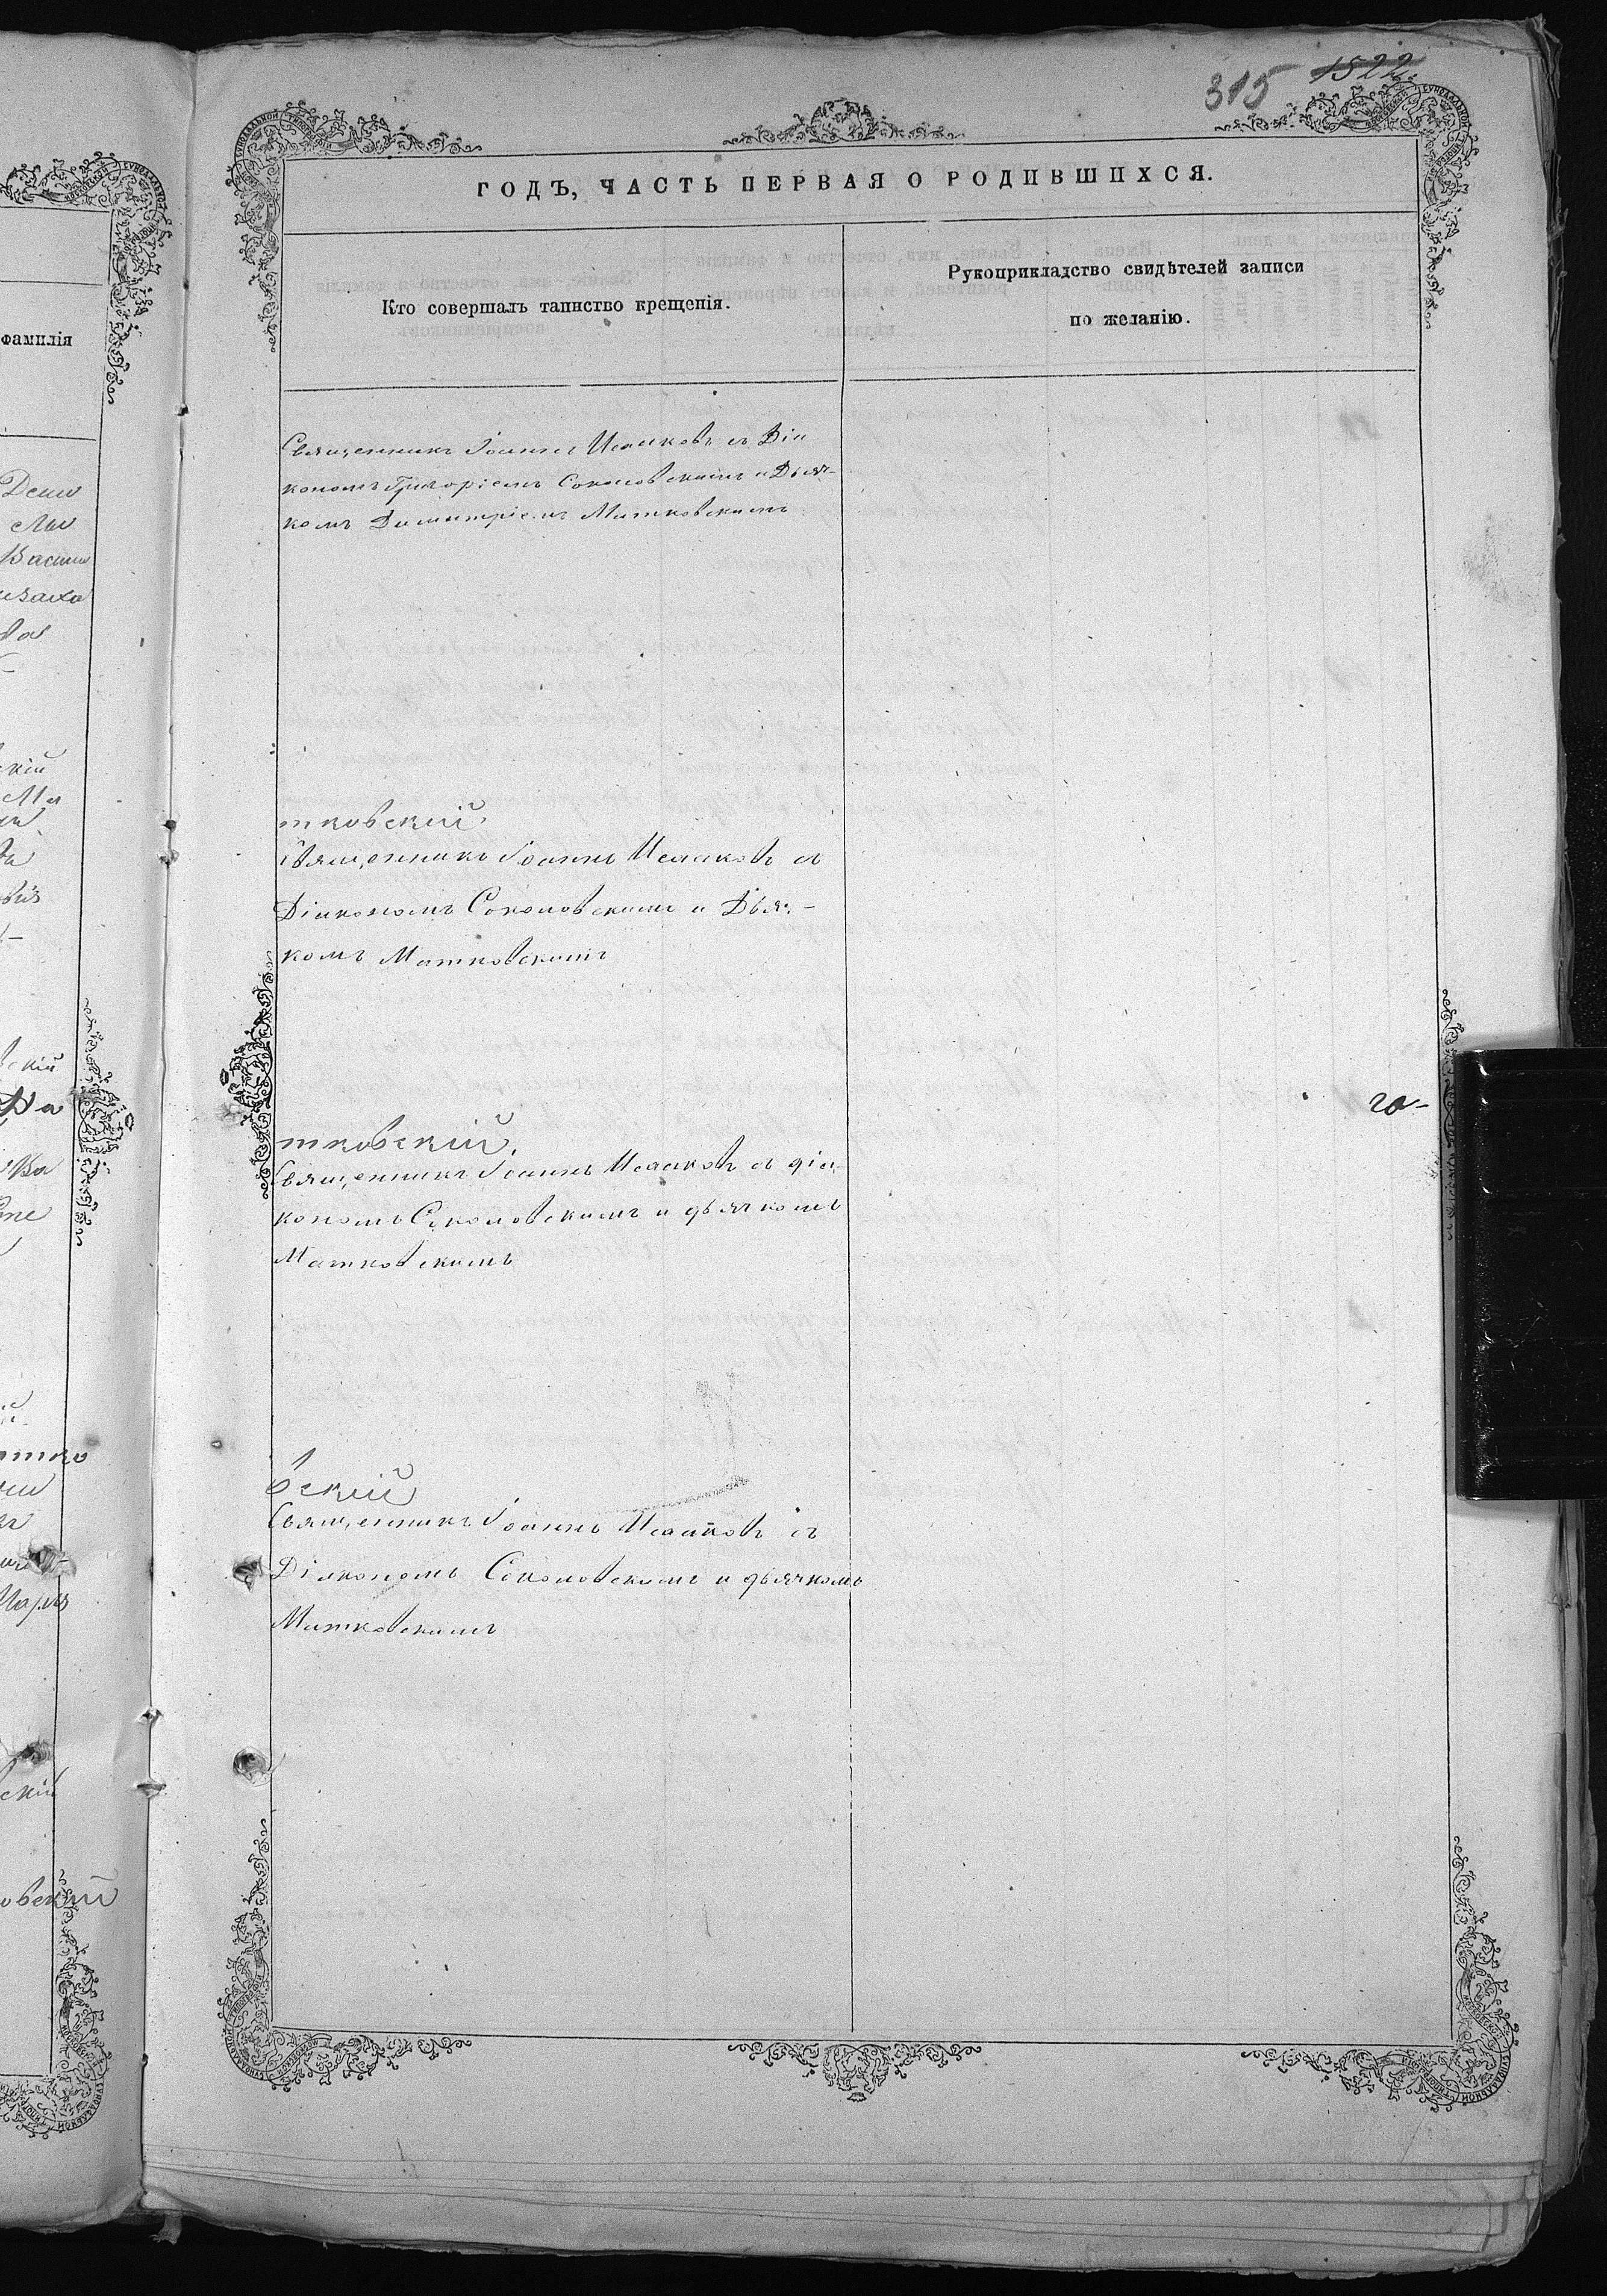 315 1522
ГОДЪ, ЧАСТЬ ПЕРВАЯ О РОДИВШИХСЯ.
Кто совершалъ таинство крещенія.
Рукоприкладство свидѣтелей записи
по желанію.
фамилія
Священникъ Іоаннъ Исааковъ съ Діа
кономъ Григоріемъ Соколовскимъ и Дьяч-
комъ Димитріемъ Матковскимъ
тковскій.
Священникъ Іоаннъ Исааковъ съ
Діакономъ Соколовскимъ и Дьяч-
комъ Матковскимъ
тковскій.
Священникъ Іоаннъ Исааковъ съ діа
кономъ Соколовскимъ и дьячкомъ
Матковскимъ
вскій
Священникъ Іоаннъ Исааковъ съ
Діакономъ Соколовскимъ и дьячкомъ
Матковскимъ